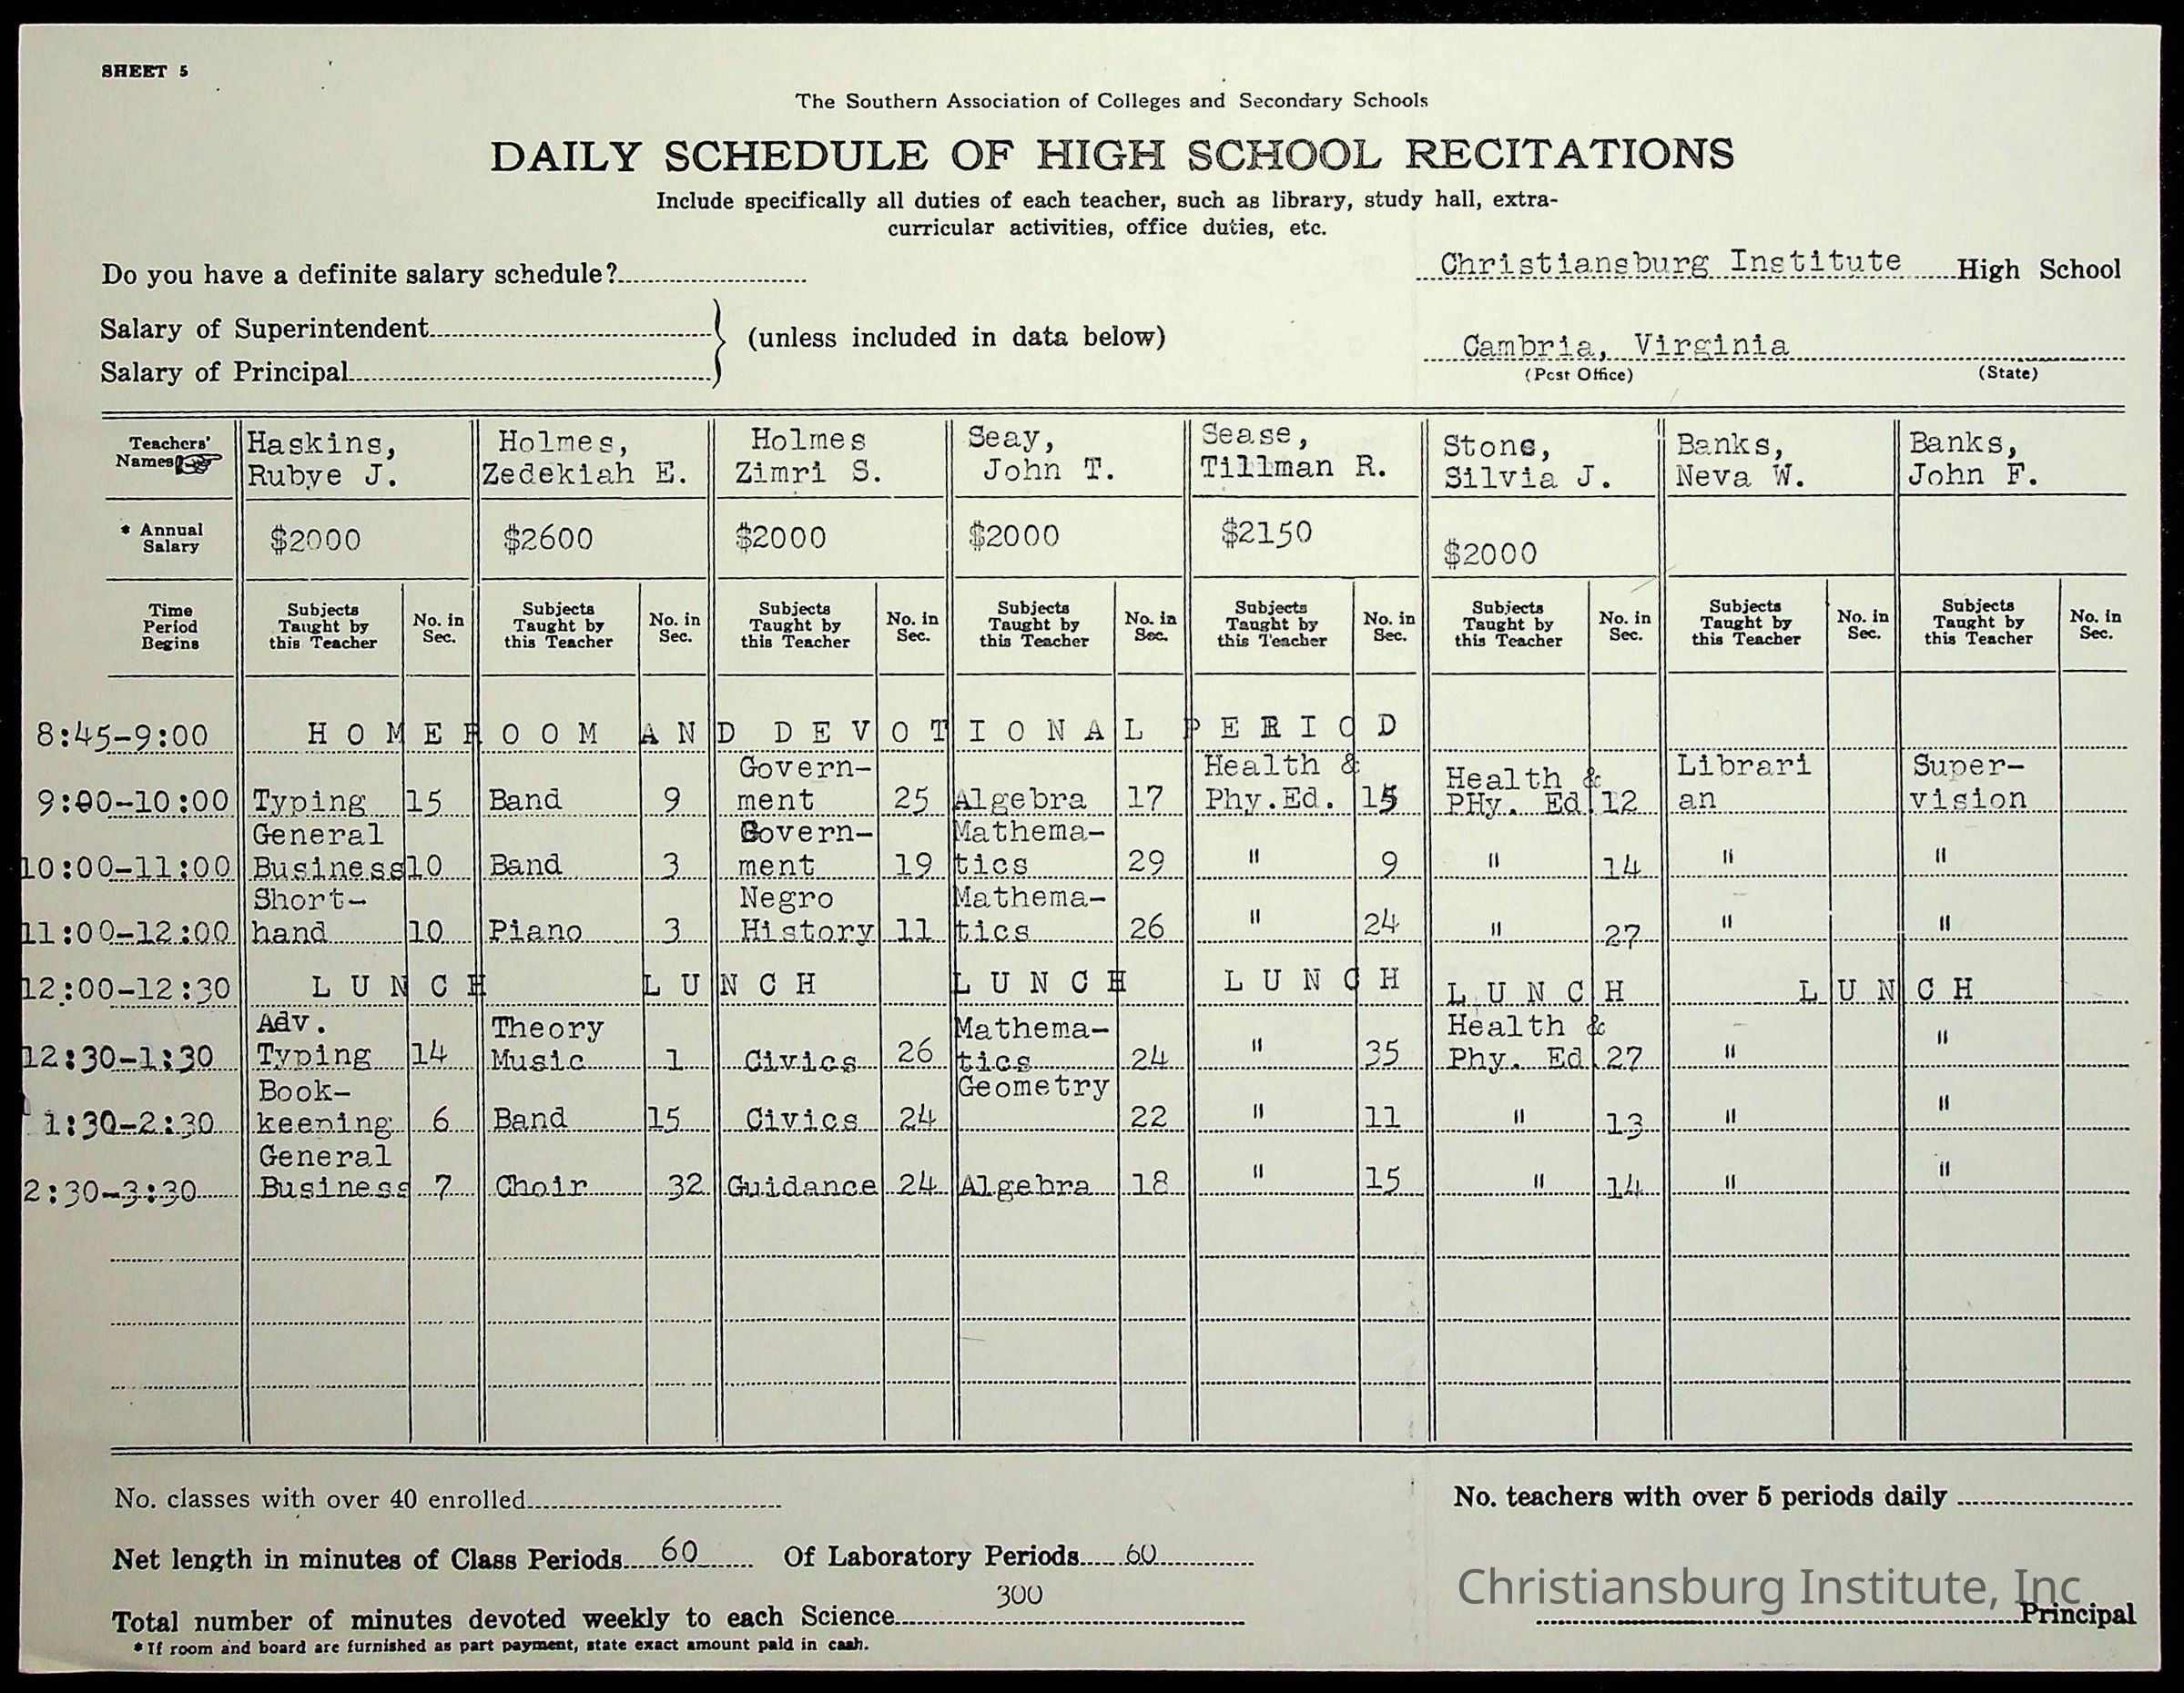 SHEET 5
The Southern Association of Colleges and Secondary Schools
DAILY SCHEDULE OF HIGH SCHOOL RECITATIONS
Include specifically all duties of each teacher, such as library, study hall, extra-
curricular activities, office duties, etc.
Do you have a definite salary schedule? Christiansburg Institute High School
Salary of Superintendent
(unless included in data below) Cambria, Virginia
Salary of Principal (Post Office) (State)
Teachers' Haskins, Holmes, Holmes Seay, Sease, Stone, Banks, Banks,
Names Rubye J. Zedekiah E. Zimri S. John T. Tillman R. Silvia J. Neva W. John F.
* Annual
Salary $2000 $2600 $2000 $2000 $2150 $2000
Time Subjects Subjects Subjects Subjects Subjects Subjects Subjects Subjects
Period Taught by No. in Taught by No. in Taught by No. in Taught by No. in Taught by No. in Taught by No. in Taught by No. in Taught by No. in
Begins this Teacher Sec. this Teacher Sec. this Teacher Sec. this Teacher Sec. this Teacher Sec. this Teacher Sec. this Teacher Sec. this Teacher Sec.
8:45-9:00 HOMEROOM AND DEVOTIONAL PERIOD
Govern- Health & Health & Librari Super-
9:00-10:00 Typing 15 Band 9 ment 25 Algebra 17 Phy.Ed. 15 PHy. Ed. 12 an vision
General Govern- Mathema-
10:00-11:00 Business 10 Band 3 ment 19 tics 29 " 9 " 14 " "
Short- Negro Mathema-
11:00-12:00 hand 10 Piano 3 History 11 tics 26 " 24 " 27 " "
12:00-12:30 LUNCH LUNCH LUNCH LUNCH LUNCH LUNCH
Adv. Theory Mathema- Health &
12:30-1:30 Typing 14 Music 1 Civics 26 tics 24 " 35 Phy. Ed. 27 " "
Book- Geometry
1:30-2:30 keeping 6 Band 15 Civics 24 22 " 11 " 13 " "
General
2:30-3:30 Business 7 Choir 32 Guidance 24 Algebra 18 " 15 " 14 " "
No. classes with over 40 enrolled No. teachers with over 5 periods daily
Net length in minutes of Class Periods 60 Of Laboratory Periods 60
Christiansburg Institute, Inc
Total number of minutes devoted weekly to each Science 300 Principal
* If room and board are furnished as part payment, state exact amount paid in cash.